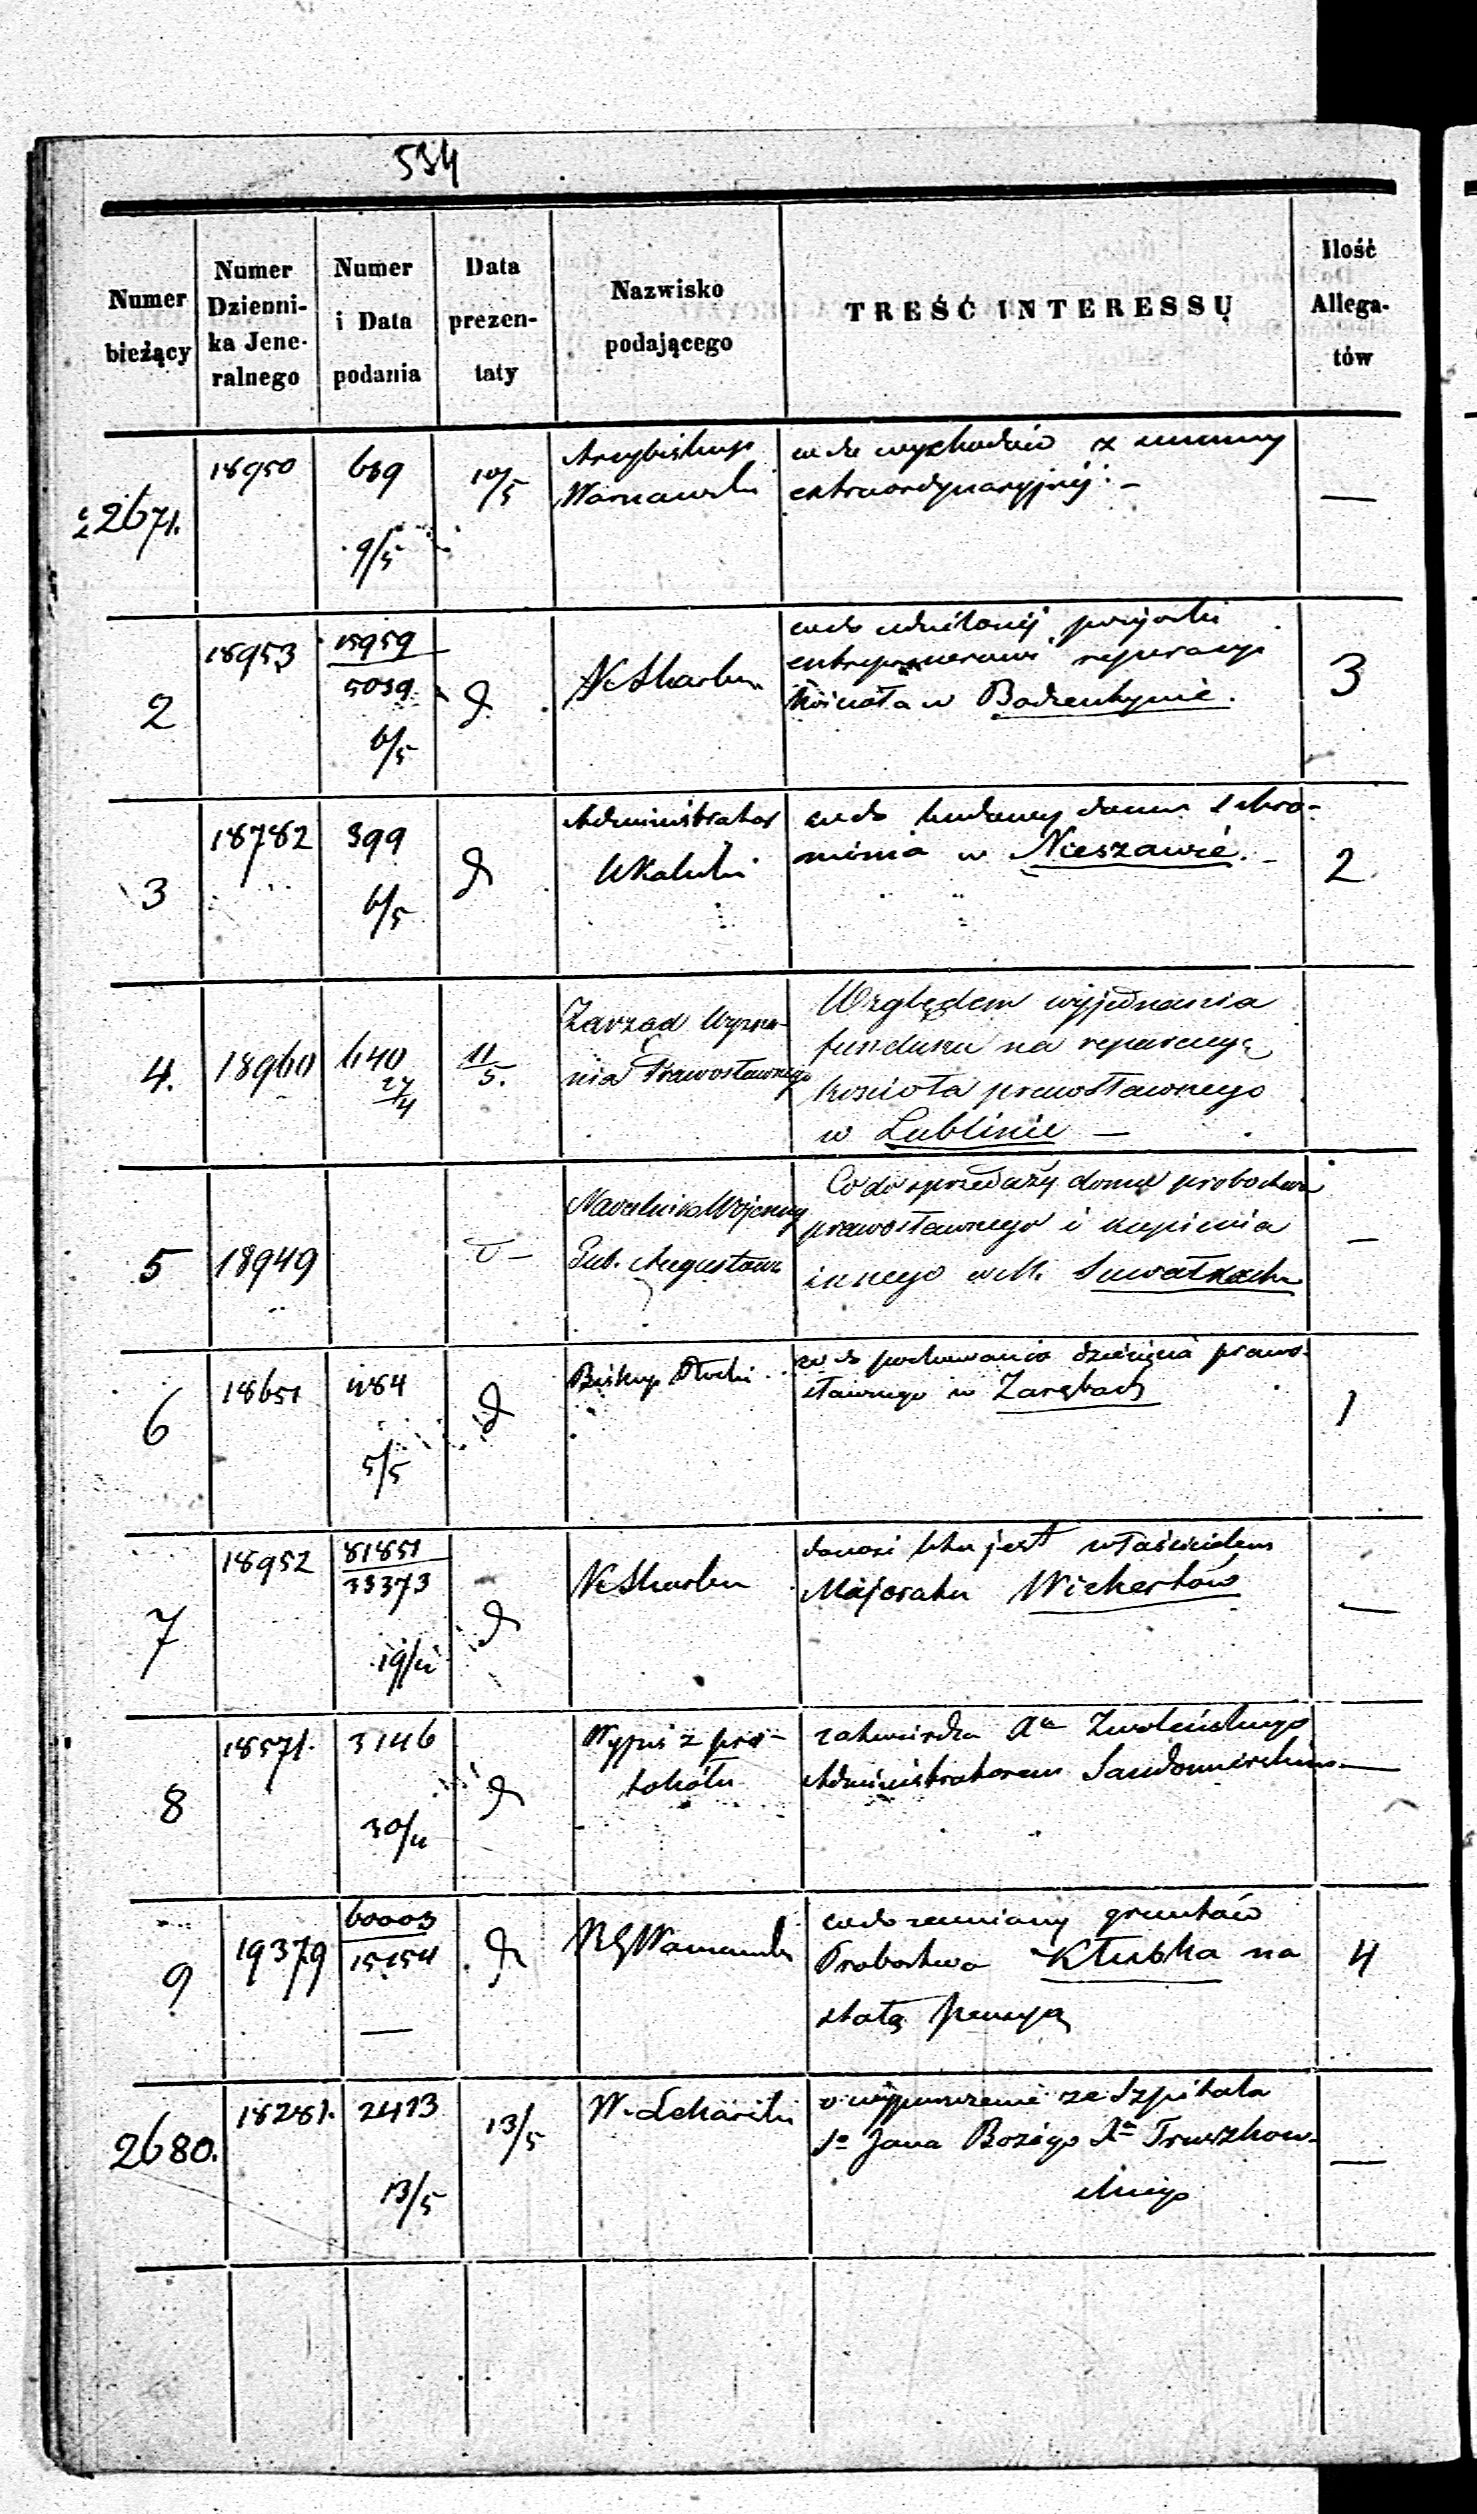 534
Numer bieżący
Numer Dzienni-ka Jene-ralnego
Numer i Data podania
Data prezen-taty
Nazwisko podającego
TREŚĆ INTERESSU
Ilość Allega-tów
2671.
18950
689
9/5
10/5
Arcybiskup
Warszawski
co do wychodów z summy
extraordynaryjnéj. –
—
2
18953
15959
5039
6/5
d
NzSkarbu
co do udzielonéj pożyczki
entreprenerowi reperacyi
Kościoła w Bodzentynie.
3
3
18782
399
6/5
d
Administrator
WKaliski
co do budowy domu schro-
nienia w Nieszawie. –
2
4.
18960
640
27/4
11/5.
Zarząd Wyzna-
nia Prawosławnego
Względem wyjednania
funduszu na reparacyę
kościoła prawosławnego
w Lublinie —
5
18949
Naczelnik Wojenny
Gub. Augustows
Co do sprzedaży domu probostwa
prawosławnego i kupienia
innego w M. Suwałkach
–
6
18651
484
5/5
d
Biskup Płocki
co do pochowania dziecięcia prawo-
sławnego w Zarębach
1
7
18952
81851
33373
d
NzSkarbu
donosi kto jest właścicielem
Majoratu Wickertów
—
8
18571.
3146
d
Wypis z pro-
tokółu
zatwierdza Xa Zwolińskiego
Administratorem Sandomierskim
—
9
19379
60003
15154
—
d
RGWarszawski
co do zamiany gruntów
Probostwa Kłubka na
stałą pensyą
4
2680.
18281.
2413
13/5
13/5
W. Lekarski
o wypuszczenie ze Szpitala
So Jana Bożego Xa Truszkow-
skiego
—